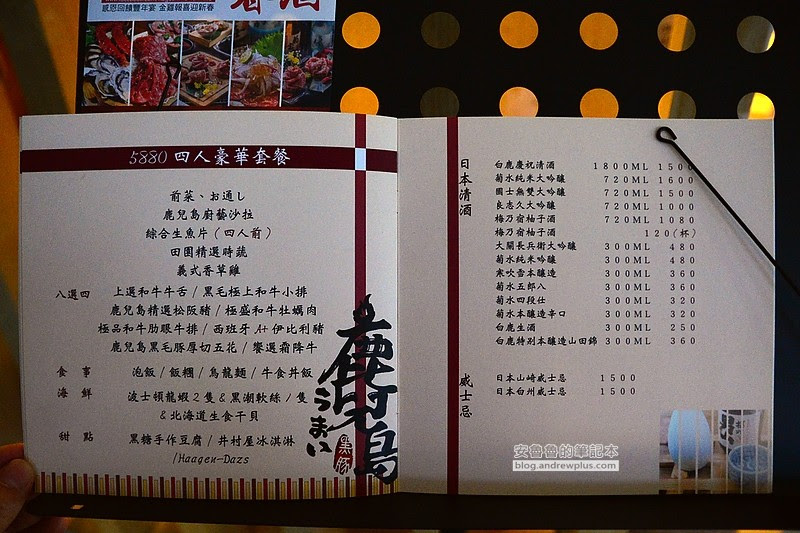 春酒
感恩回饋豐年宴 金雞報喜迎新春
5880 四人豪華套餐
前菜、お通し
鹿兒島廚藝沙拉
綜合生魚片（四人前）
田園精選時蔬
義式香草雞
八選四 上選和牛牛舌 / 黑毛極上和牛小排
鹿兒島精選松阪豬 / 極盛和牛牡蠣肉
極品和牛肋眼牛排 / 西班牙 A+ 伊比利豬
鹿兒島黑毛豚厚切五花 / 饗選霜降牛
食事 泡飯 / 飯糰 / 烏龍麵 / 牛食丼飯
海鮮 波士頓龍蝦2隻 & 黑潮軟絲 / 隻
& 北海道生食干貝
甜點 黑糖手作豆腐 / 井村屋冰淇淋
/Haagen-Dazs
鹿兒島
うまい
黑豚
日本清酒
白鹿慶祝清酒 1800ML 1500
菊水純米大吟釀 720ML 1600
國士無雙大吟釀 720ML 1500
良志久大吟釀 720ML 1000
梅乃宿柚子酒 720ML 1080
梅乃宿柚子酒 120(杯)
大關長兵衛大吟釀 300ML 480
菊水純米吟釀 300ML 480
寒吹雪本釀造 300ML 360
菊水五郎八 300ML 360
菊水四段仕 300ML 320
菊水本釀造辛口 300ML 320
白鹿生酒 300ML 250
白鹿特別本釀造山田錦 300ML 360
威士忌
日本山崎威士忌 1500
日本白州威士忌 1500
安魯魯的筆記本
blog.andrewplus.com